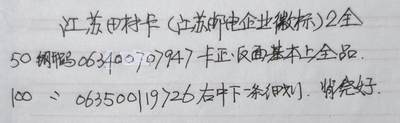 江苏田村卡（江苏邮电企业徽标）2全
50 钢码063400707947 卡正.反面基本上全品.
100 〃 063500119726 右中下一条细划.背完好.